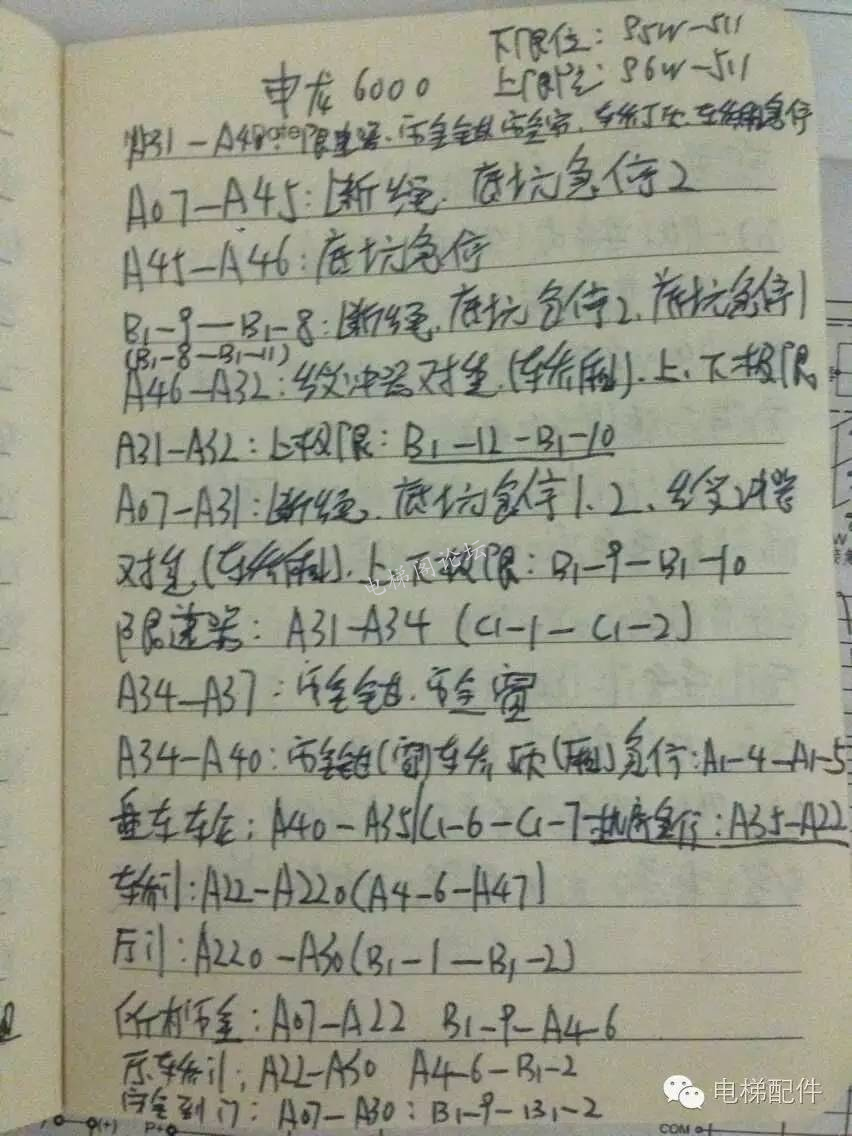 下限位：95W-511
申龙6000 上限位：96W-511
A31-A40 限速器、安全钳 安全窗、轿顶、轿厢急停
A07-A45：断绳、底坑急停2
A45-A46：底坑急停
B1-9-B1-8：断绳、底坑急停2、底坑急停1
(B1-8-B1-11)
A46-A32：缓冲器对重、(轿厢)、上、下极限
A31-A32：上极限：B1-12-B1-10
A07-A31：断绳、底坑急停1、2、缓冲器
对重、(轿厢)、上、下极限：B1-9-B1-10
电梯图论坛
限速器：A31-A34 (C1-1-C1-2)
A34-A37：安全钳、安全窗
A34-A40：安全钳(窗)轿 顶(厢)急停：A1-4-A1-5
盘车 ：A40-A35/C1-6-C1-7 机房急停：A35-A22
轿门：A22-A220(A4-6-A47)
厅门：A220-A30(B1-1-B1-2)
所有安全：A07-A22 B1-9-A4-6
厅、轿门：A22-A30 A4-6-B1-2
安全到门：A07-A30：B1-9-B1-2
电梯配件
(+) P+ COM